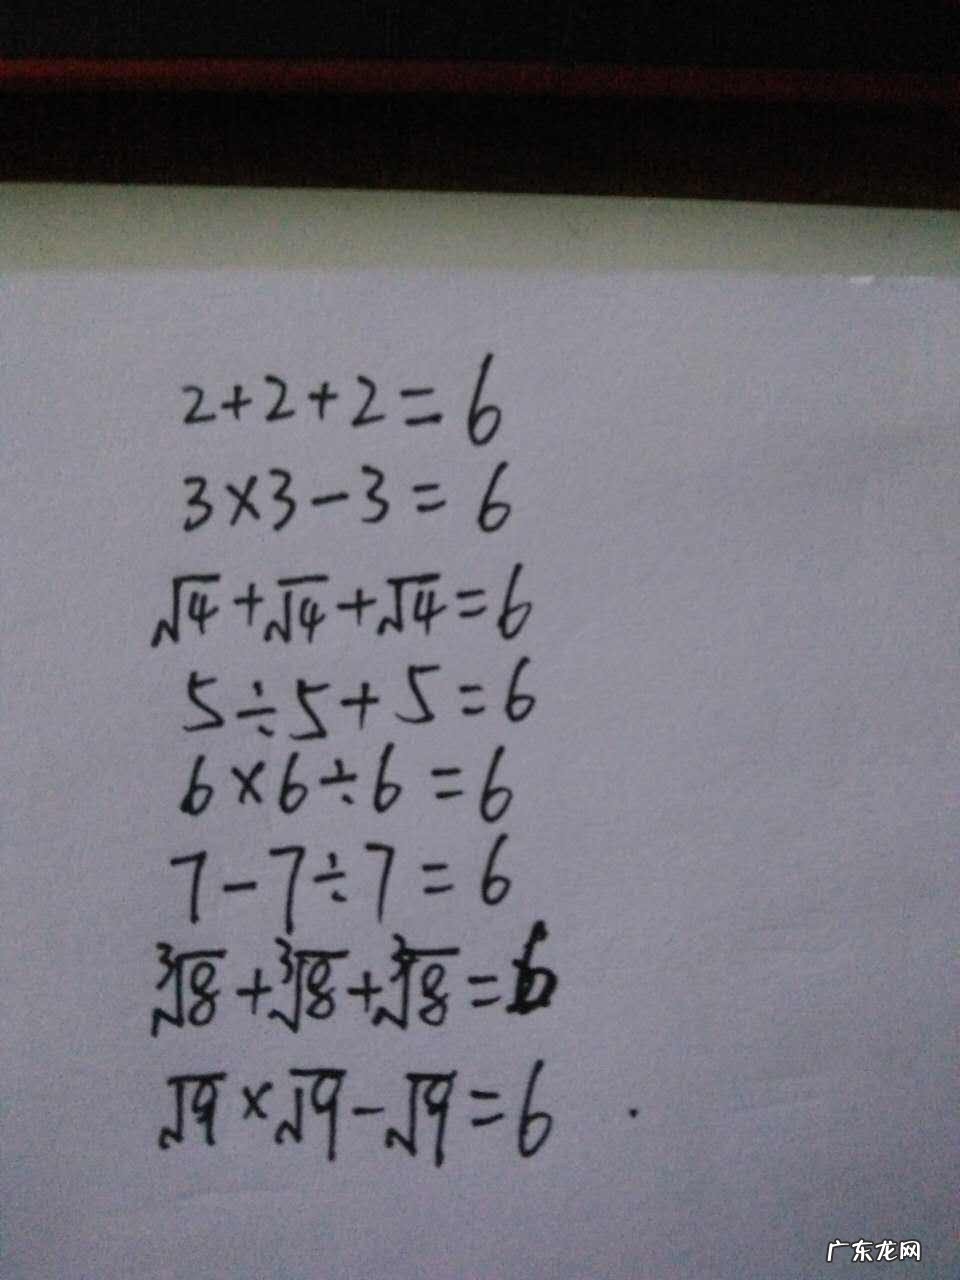 2+2+2=6
3×3-3=6
√4+√4+√4=6
5÷5+5=6
6×6÷6=6
7-7÷7=6
³√8+³√8+³√8=6
√9×√9-√9=6
广东龙网